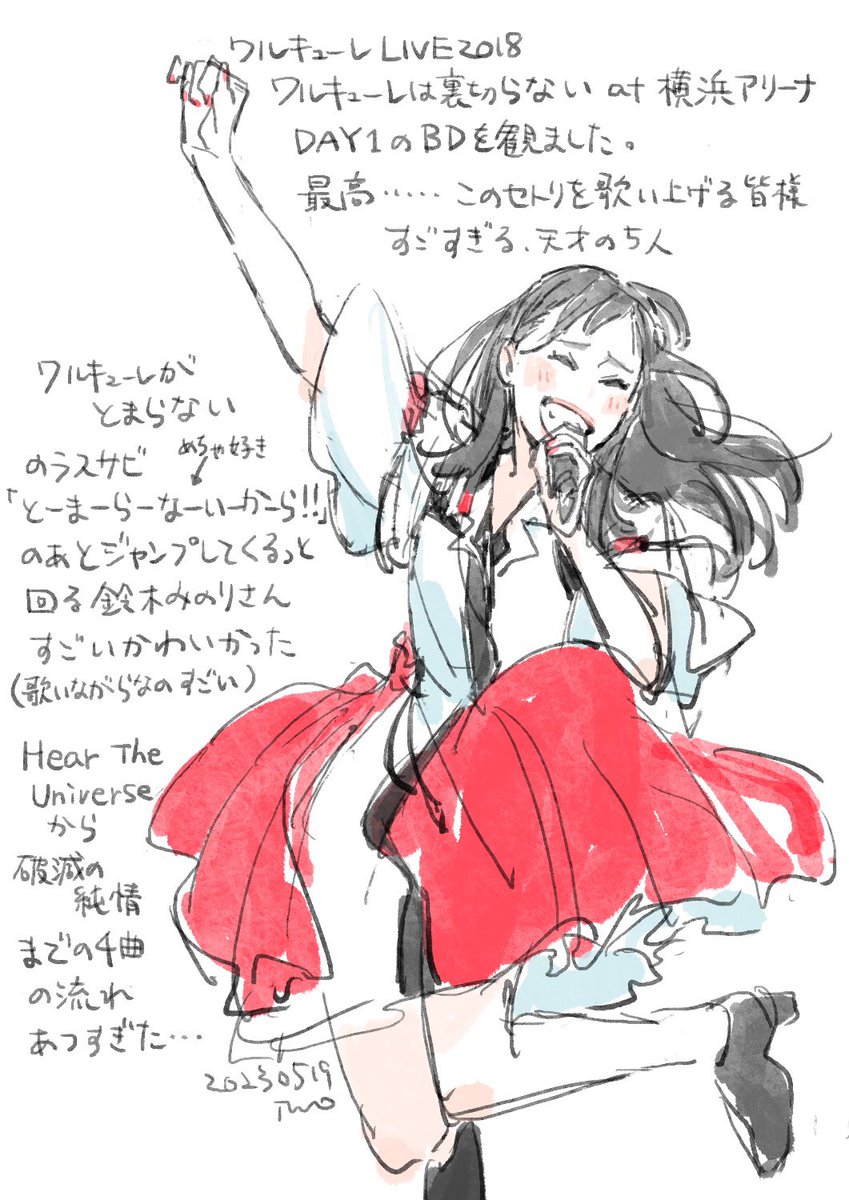 ワルキューレ LIVE2018
ワルキューレは裏切らない at 横浜アリーナ
DAY1のBDを観ました。
最高…… このセトリを歌い上げる皆様
すごすぎる、天才の5人
ワルキューレが
とまらない
のラスサビ
めちゃ好き
「とーまーらーなーいーかーら!!」
のあとジャンプしてくるっと
回る鈴木みのりさん
すごいかわいかった
(歌いながらなのすごい)
Hear The
Universe
から
破滅の
純情
までの4曲
の流れ
あつすぎた…
20230519